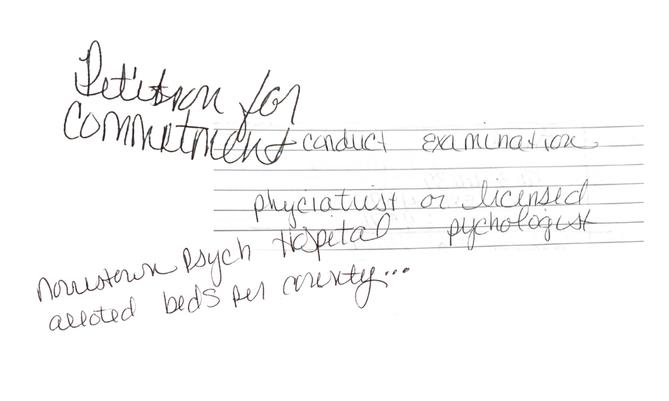 Petition for
Commetment conduct examination
phyciatrist or licensed
Hospital pychologist
Norristown Psych
alloted beds per county...